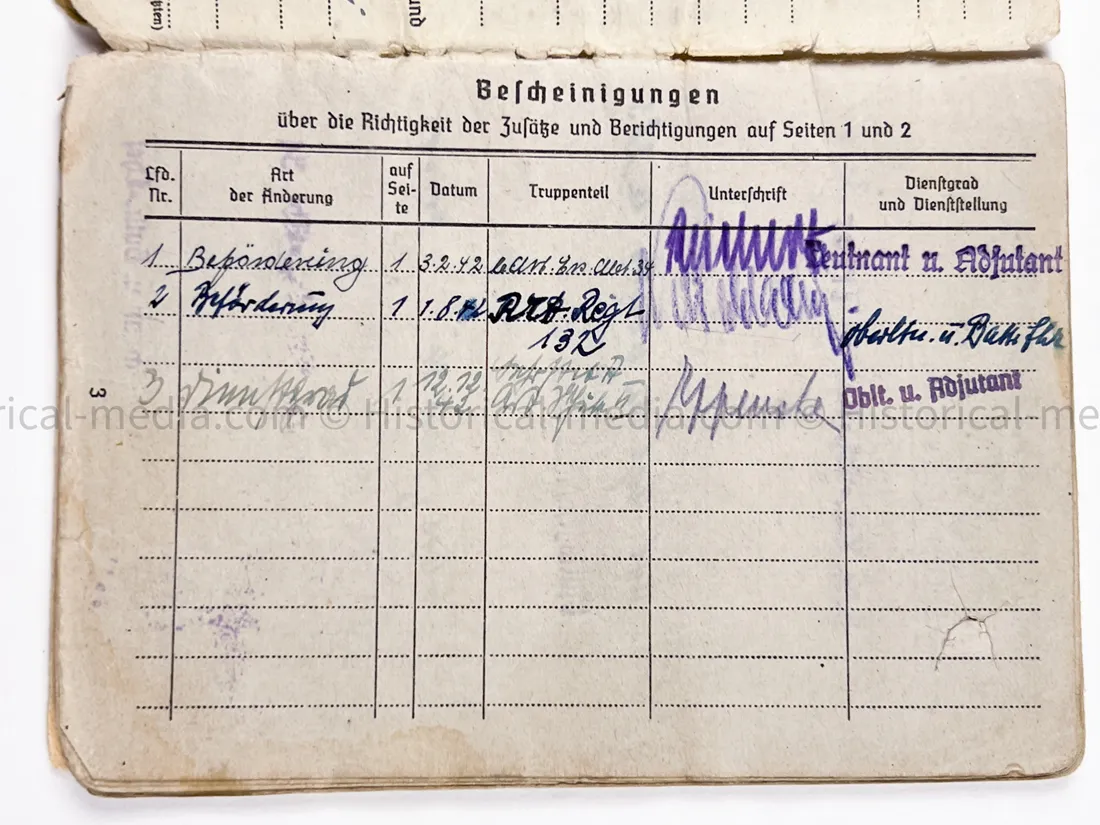 gten)
und
Bescheinigungen
über die Richtigkeit der Zusätze und Berichtigungen auf Seiten 1 und 2
Lfd. Nr.
Art der Änderung
auf Sei-te
Datum
Truppenteil
Unterschrift
Dienstgrad und Dienststellung
1 Beförderung 1 3.2.42 34 Leutnant u. Adjutant
2 Beförderung 1 1.8.42 Art. Regt
132 Oberltn. u. Battr. Fhr.
3 Dienstgrad 1 12.12. 42 Oblt. u. Adjutant
3
rical-media.com © Historical-media.com © Historical-me